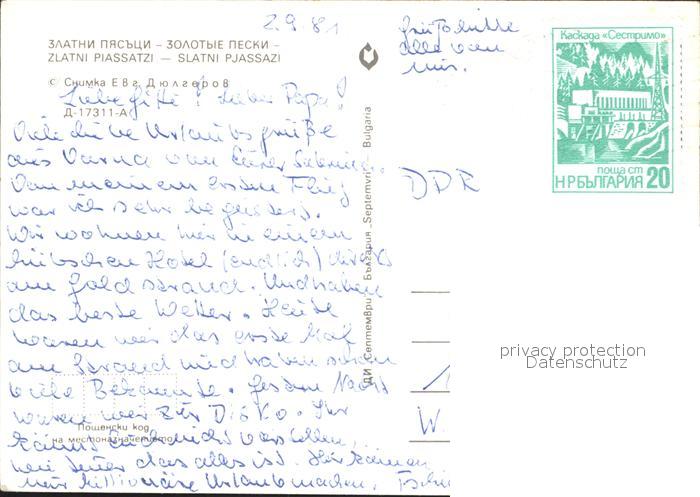 2.9.81
ЗЛАТНИ ПЯСЪЦИ – ЗОЛОТЫЕ ПЕСКИ –
ZLATNI PIASSATZI — SLATNI PJASSAZI
© Снимка Евг. Дюлгеров
Д-17311-А
Liebe ! Lieber Papa!
Viele liebe Urlaubsgrüße
aus Varna von Eurer
Von meinem ersten Flug
war ich sehr begeistert.
Wir wohnen hier in einem
hübschen Hotel (endlich) direkt
am Goldstrand. Und haben
das beste Wetter. Heute
waren wir das erste Mal
am Strand und haben schon
viele Bekannte. Gestern Nacht
waren wir zur Disko. Ihr
könnt Euch nicht vorstellen,
wie teuer das alles ist. Hier können
nur Millionäre Urlaub machen.
Пощенски код
на местоназначението
ДИ „Септември" България „Septemvri" Bulgaria
Grüßt bitte
alle von
mir.
DDR
1
W.
Каскада „Сестримо"
поща ст
НР БЪЛГАРИЯ 20
privacy protection
Datenschutz